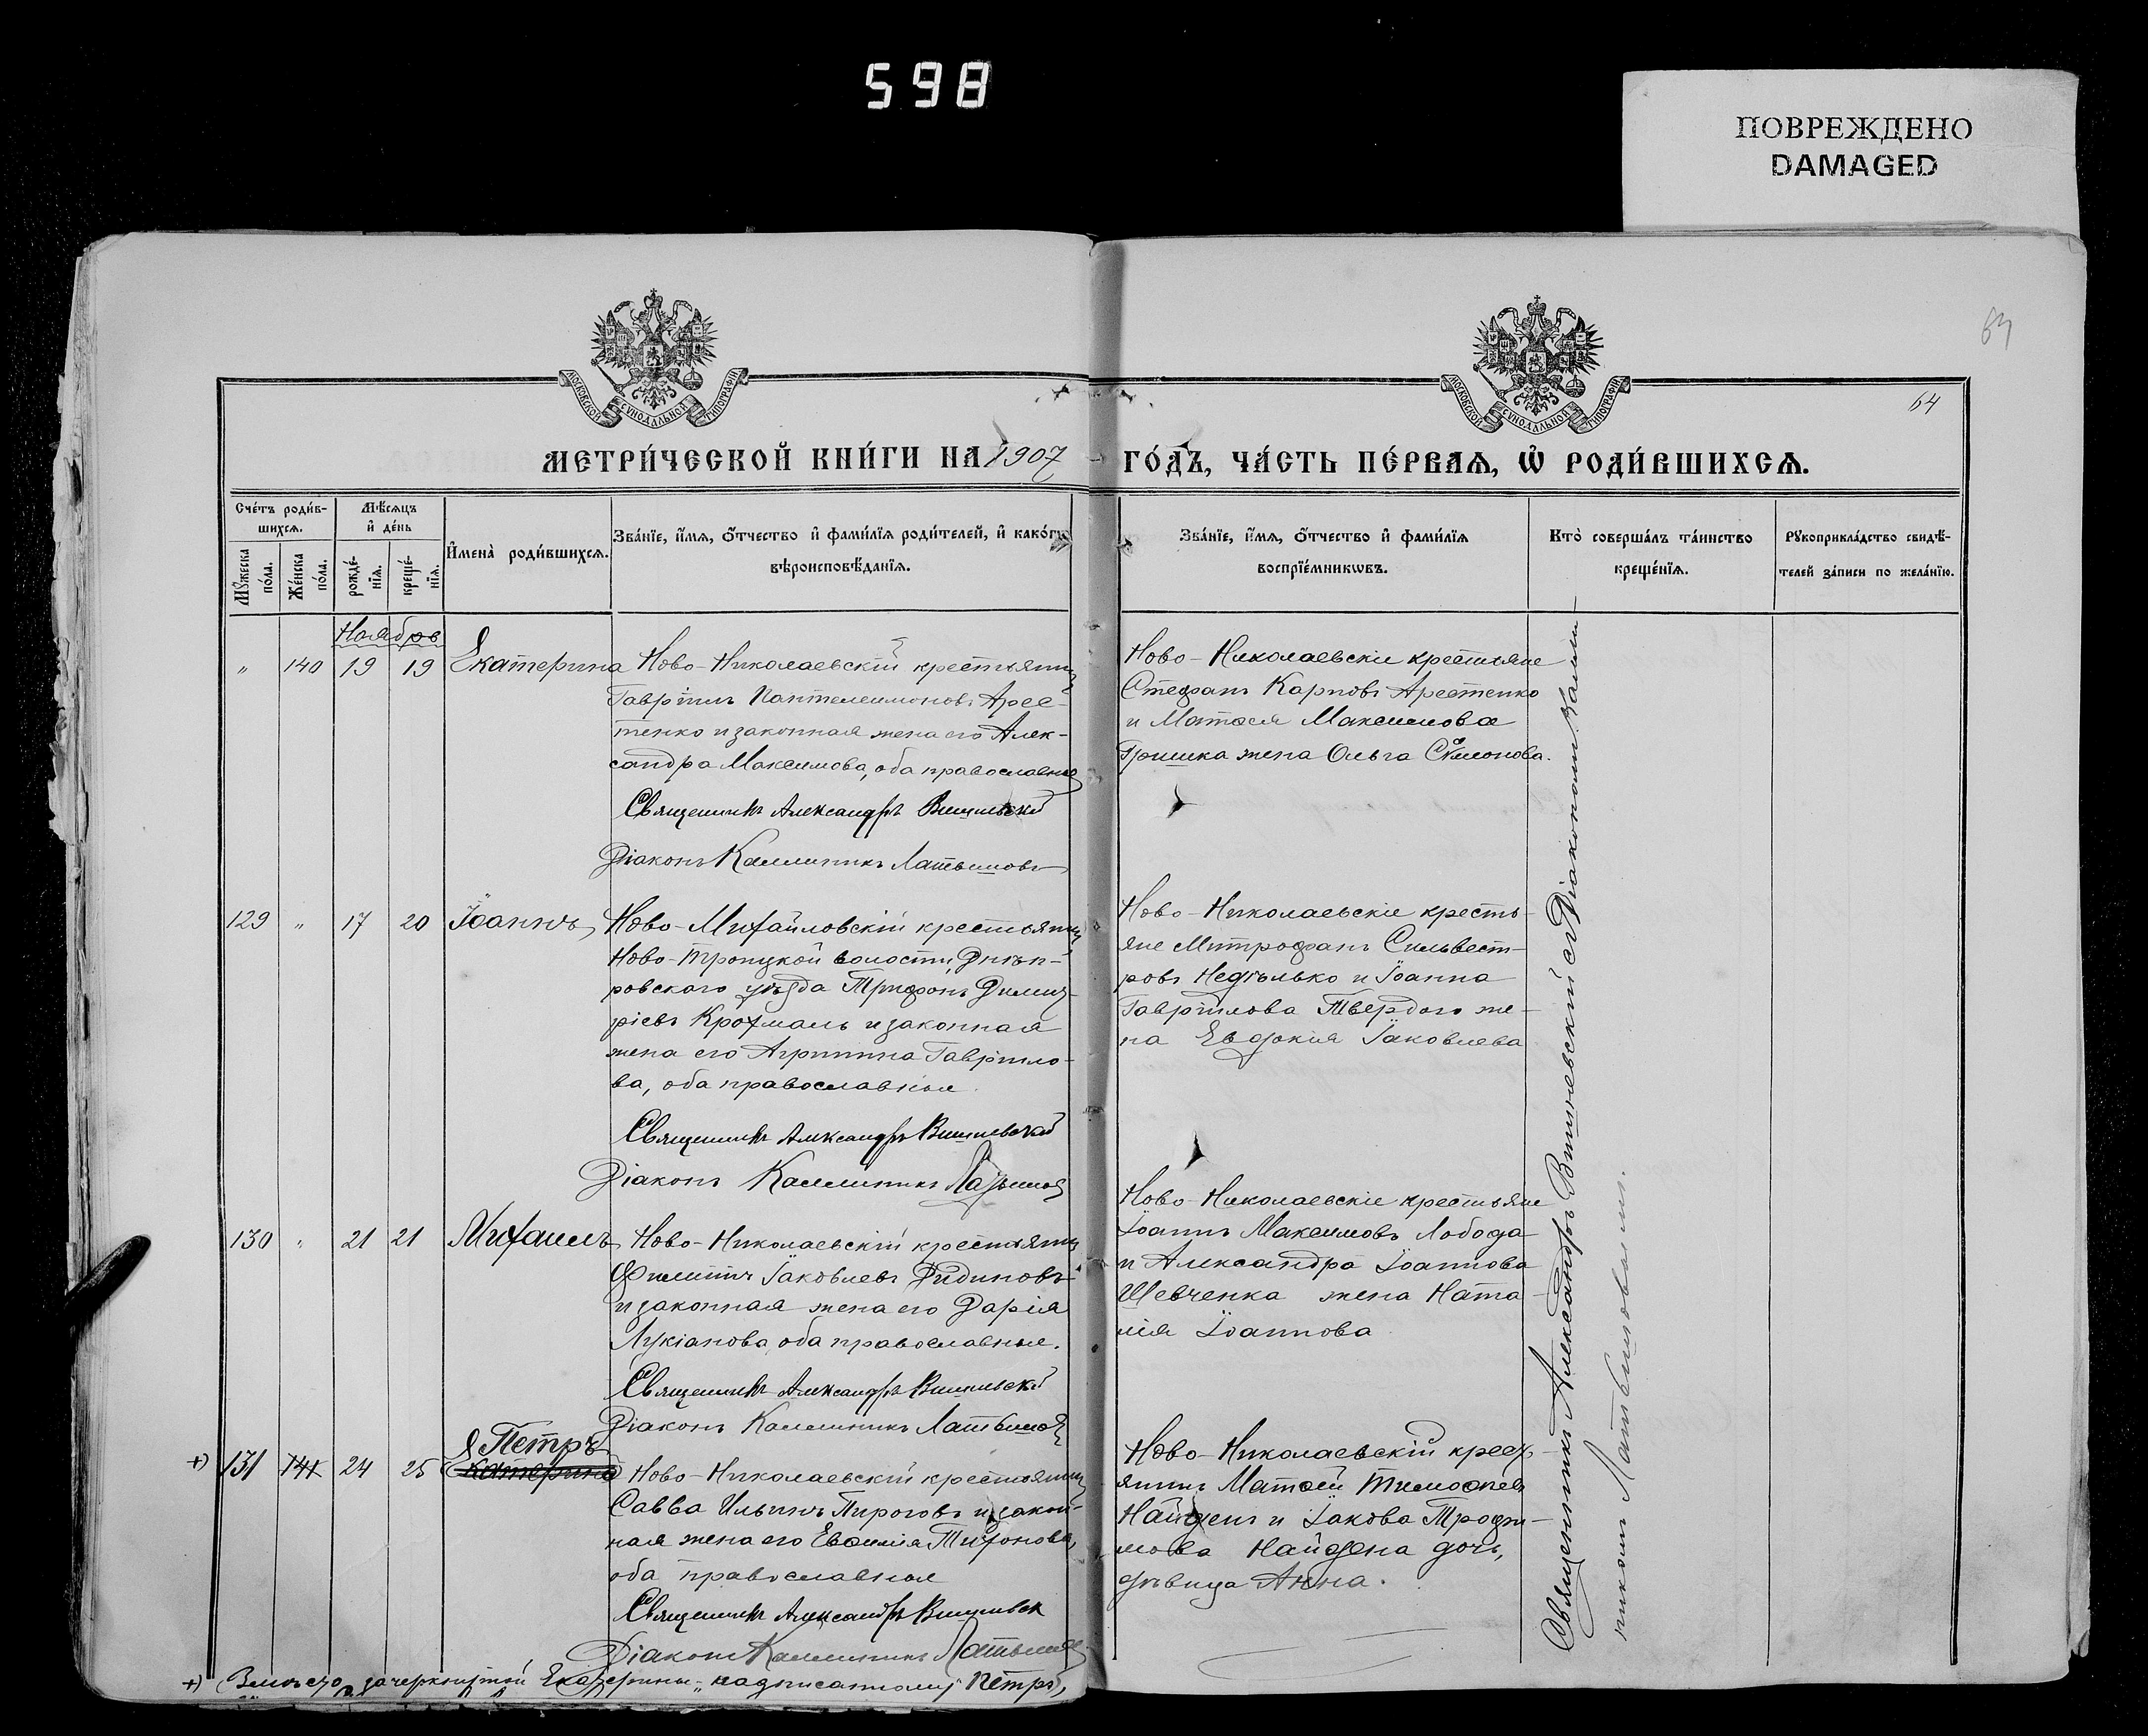 598
ПОВРЕЖДЕНО
DAMAGED
64
64
МОСКОВСКОЙ СѴНОДАЛЬНОЙ ТИПОГРАФІИ
МОСКОВСКОЙ СѴНОДАЛЬНОЙ ТИПОГРАФІИ
МЕТРИ́ЧЕСКОЙ КНИ́ГИ НА 1907 ГО́ДЪ, ЧА́СТЬ ПЕ́РВАѦ, Ѡ҆ РОДИ́ВШИХСѦ.
Сче́тъ роди́в-
шихсѧ.
Мꙋ́жеска по́ла.
Же́нска по́ла.
Мѣ́сѧцъ
и҆ де́нь
рожде́-
нїѧ.
креще́-
нїѧ.
И҆мена̀ роди́вшихсѧ.
Зва́нїе, и҆́мѧ, ѻ҆́тчество и҆ фами́лїѧ роди́телей, и҆ како́гѡ
вѣроисповѣ́данїѧ.
Зва́нїе, и҆́мѧ, ѻ҆́тчество и҆ фами́лїѧ
воспрїе́мникѡвъ.
Кто̀ соверша́лъ та́инство
креще́нїѧ.
Рꙋкоприкла́дство свидѣ́-
телей за́писи по жела́нїю.
Ноябрь
" 140 19 19 Екатерина
Ново-Николаевскій крестьянинъ
Гавріилъ Пантелеимоновъ Арес-
тенко и законная жена его Алек-
сандра Максимова, оба православные
Священникъ Александръ Вишневскій
Діаконъ Каллиникъ Латышовъ
Ново-Николаевскіе крестьяне
Стефанъ Карповъ Арестенко
и Матѳея Максимова
Гришка жена Ольга Симонова.
129 " 17 20 Іоаннъ
Ново-Михайловскій крестьянинъ
Ново-Троицкой волости, Днѣп-
ровскаго уѣзда Трифонъ Димит-
ріевъ Крохмаль и законная
жена его Агриппина Гавріило-
ва, оба православные
Священникъ Александръ Вишневскій
Діаконъ Каллиникъ Латышов
Ново-Николаевскіе кресть-
яне Митрофанъ Сильвест-
ровъ Недѣлько и Іоанна
Гавріилова Твердого же-
на Евдокія Іаковлева
130 " 21 21 Михаилъ
Ново-Николаевскій крестьянинъ
Филиппъ Іаковлевъ Дидиновъ
и законная жена его Дарія
Лукіанова, оба православные.
Священникъ Александръ Вишневскій
Діаконъ Каллиникъ Латышов
Ново-Николаевскіе крестьяне
Іоаннъ Максимовъ Лобода
и Александра Іоаннова
Шевченка жена Ната-
лія Іоаннова
+) 131 141 24 25 Петръ
Екатерина
Ново-Николаевскій крестьянинъ
Савва Ильинъ Пироговъ и закон-
ная жена его Евѳимія Тихонова,
оба православные
Священникъ Александръ Вишневск
Діаконъ Каллиникъ Латышов
Ново-Николаевскій крест-
янинъ Матѳей Тимоѳеевъ
Найденъ и Іакова Трофи-
мова Найдена дочь,
дѣвица Анна.
Священникъ Александръ Вишневскій съ Діакономъ Калли-
никомъ Латышовымъ.
+) Вмѣсто зачеркнутой Екатерины, надписанному Петръ,